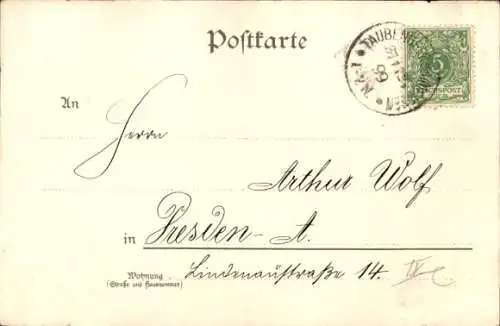 Postkarte
5
REICHSPOST
99
An
Herrn
Arthur Wolf
in Dresden-A.
Wohnung
(Straße und Hausnummer)
Lindenaustraße 14.